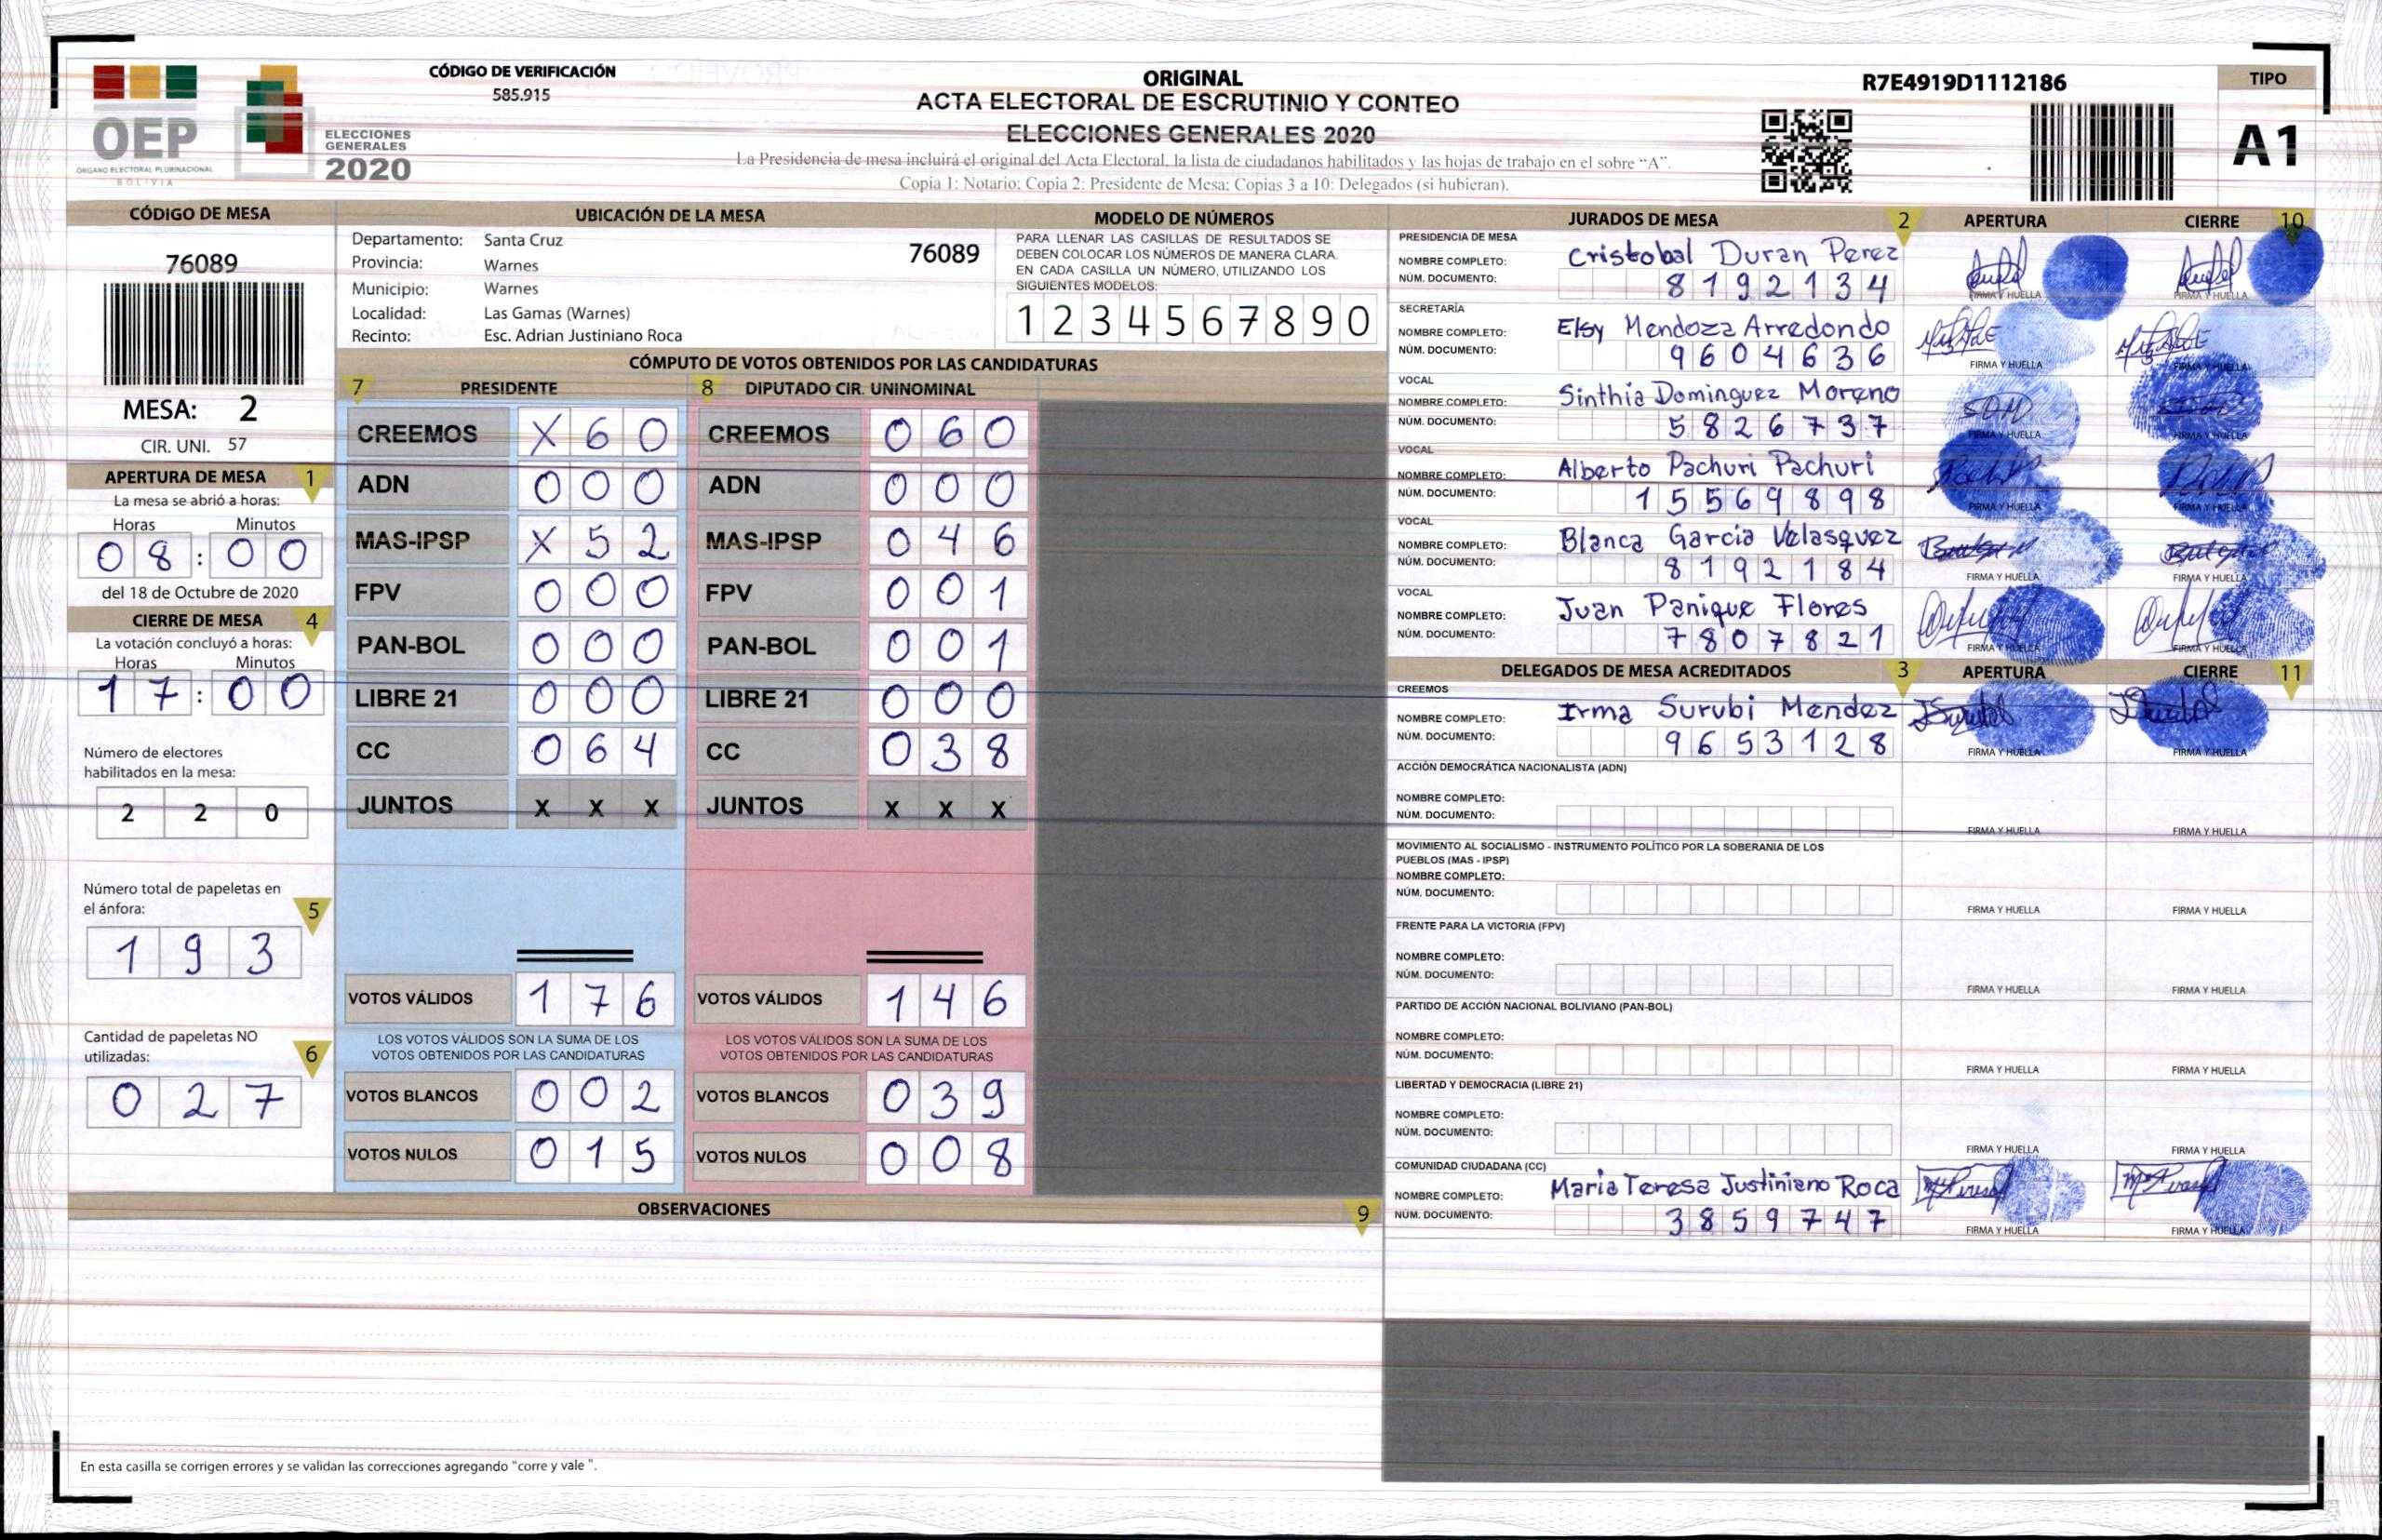 CÓDIGO DE VERIFICACIÓN
585.915
OEP
ÓRGANO ELECTORAL PLURINACIONAL
BOLIVIA
ELECCIONES
GENERALES
2020
ORIGINAL
ACTA ELECTORAL DE ESCRUTINIO Y CONTEO
ELECCIONES GENERALES 2020
La Presidencia de mesa incluirá el original del Acta Electoral, la lista de ciudadanos habilitados y las hojas de trabajo en el sobre “A”.
Copia 1: Notario; Copia 2: Presidente de Mesa; Copias 3 a 10: Delegados (si hubieran).
R7E4919D1112186
TIPO
A1
CÓDIGO DE MESA
76089
MESA: 2
CIR. UNI. 57
APERTURA DE MESA 1
La mesa se abrió a horas:
Horas Minutos
0 8 : 0 0
del 18 de Octubre de 2020
CIERRE DE MESA 4
La votación concluyó a horas:
Horas Minutos
1 7 : 0 0
Número de electores
habilitados en la mesa:
2 2 0
Número total de papeletas en
el ánfora:
5
1 9 3
Cantidad de papeletas NO
utilizadas:
6
0 2 7
UBICACIÓN DE LA MESA
Departamento: Santa Cruz
76089
Provincia: Warnes
Municipio: Warnes
Localidad: Las Gamas (Warnes)
Recinto: Esc. Adrian Justiniano Roca
MODELO DE NÚMEROS
PARA LLENAR LAS CASILLAS DE RESULTADOS SE
DEBEN COLOCAR LOS NÚMEROS DE MANERA CLARA.
EN CADA CASILLA UN NÚMERO, UTILIZANDO LOS
SIGUIENTES MODELOS:
1 2 3 4 5 6 7 8 9 0
CÓMPUTO DE VOTOS OBTENIDOS POR LAS CANDIDATURAS
7 PRESIDENTE
CREEMOS X 6 0
ADN 0 0 0
MAS-IPSP X 5 2
FPV 0 0 0
PAN-BOL 0 0 0
LIBRE 21 0 0 0
CC 0 6 4
JUNTOS X X X
VOTOS VÁLIDOS 1 7 6
LOS VOTOS VÁLIDOS SON LA SUMA DE LOS
VOTOS OBTENIDOS POR LAS CANDIDATURAS
VOTOS BLANCOS 0 0 2
VOTOS NULOS 0 1 5
8 DIPUTADO CIR. UNINOMINAL
CREEMOS 0 6 0
ADN 0 0 0
MAS-IPSP 0 4 6
FPV 0 0 1
PAN-BOL 0 0 1
LIBRE 21 0 0 0
CC 0 3 8
JUNTOS X X X
VOTOS VÁLIDOS 1 4 6
LOS VOTOS VÁLIDOS SON LA SUMA DE LOS
VOTOS OBTENIDOS POR LAS CANDIDATURAS
VOTOS BLANCOS 0 3 9
VOTOS NULOS 0 0 8
OBSERVACIONES 9
En esta casilla se corrigen errores y se validan las correcciones agregando "corre y vale ".
JURADOS DE MESA 2 APERTURA CIERRE 10
PRESIDENCIA DE MESA
NOMBRE COMPLETO: Cristobal Duran Perez
NÚM. DOCUMENTO: 8 1 9 2 1 3 4
FIRMA Y HUELLA FIRMA Y HUELLA
SECRETARÍA
NOMBRE COMPLETO: Elsy Mendoza Arredondo
NÚM. DOCUMENTO: 9 6 0 4 6 3 6
FIRMA Y HUELLA FIRMA Y HUELLA
VOCAL
NOMBRE COMPLETO: Sinthia Dominguez Moreno
NÚM. DOCUMENTO: 5 8 2 6 7 3 7
FIRMA Y HUELLA FIRMA Y HUELLA
VOCAL
NOMBRE COMPLETO: Alberto Pachuri Pachuri
NÚM. DOCUMENTO: 1 5 5 6 9 8 9 8
FIRMA Y HUELLA FIRMA Y HUELLA
VOCAL
NOMBRE COMPLETO: Blanca Garcia Velasquez
NÚM. DOCUMENTO: 8 1 9 2 1 8 4
FIRMA Y HUELLA FIRMA Y HUELLA
VOCAL
NOMBRE COMPLETO: Juan Panique Flores
NÚM. DOCUMENTO: 7 8 0 7 8 2 1
FIRMA Y HUELLA FIRMA Y HUELLA
DELEGADOS DE MESA ACREDITADOS 3 APERTURA CIERRE 11
CREEMOS
NOMBRE COMPLETO: Irma Surubi Mendez
NÚM. DOCUMENTO: 9 6 5 3 1 2 8
FIRMA Y HUELLA FIRMA Y HUELLA
ACCIÓN DEMOCRÁTICA NACIONALISTA (ADN)
NOMBRE COMPLETO:
NÚM. DOCUMENTO:
FIRMA Y HUELLA FIRMA Y HUELLA
MOVIMIENTO AL SOCIALISMO - INSTRUMENTO POLÍTICO POR LA SOBERANIA DE LOS
PUEBLOS (MAS - IPSP)
NOMBRE COMPLETO:
NÚM. DOCUMENTO:
FIRMA Y HUELLA FIRMA Y HUELLA
FRENTE PARA LA VICTORIA (FPV)
NOMBRE COMPLETO:
NÚM. DOCUMENTO:
FIRMA Y HUELLA FIRMA Y HUELLA
PARTIDO DE ACCIÓN NACIONAL BOLIVIANO (PAN-BOL)
NOMBRE COMPLETO:
NÚM. DOCUMENTO:
FIRMA Y HUELLA FIRMA Y HUELLA
LIBERTAD Y DEMOCRACIA (LIBRE 21)
NOMBRE COMPLETO:
NÚM. DOCUMENTO:
FIRMA Y HUELLA FIRMA Y HUELLA
COMUNIDAD CIUDADANA (CC)
NOMBRE COMPLETO: Maria Teresa Justiniano Roca
NÚM. DOCUMENTO: 3 8 5 9 7 4 7
FIRMA Y HUELLA FIRMA Y HUELLA